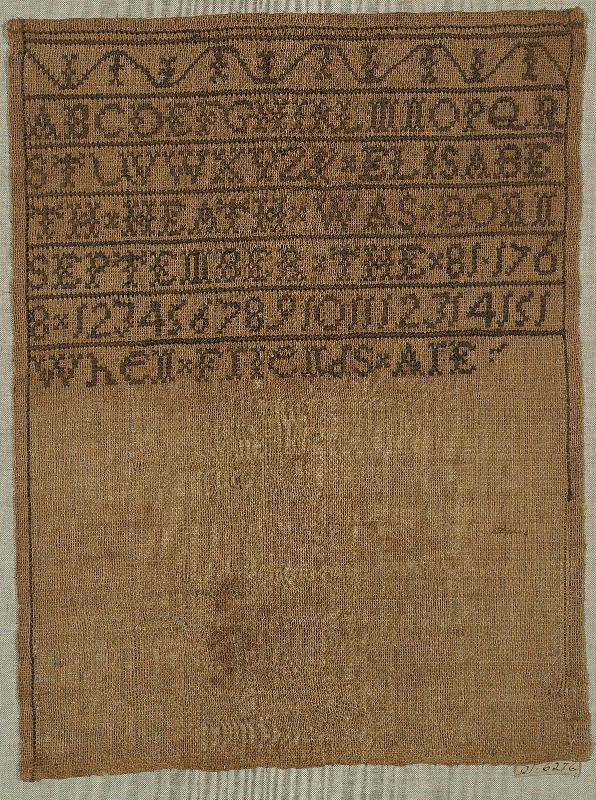 ABCDEFGHIKLMNOPQR
STUVWXYZ& × ELISABE
TH × HEATH × WAS × BORN
SEPTEMBER × THE × 81 · 176
8 × 123456789101112131415 1
WhEN × FrIENdS × ArE